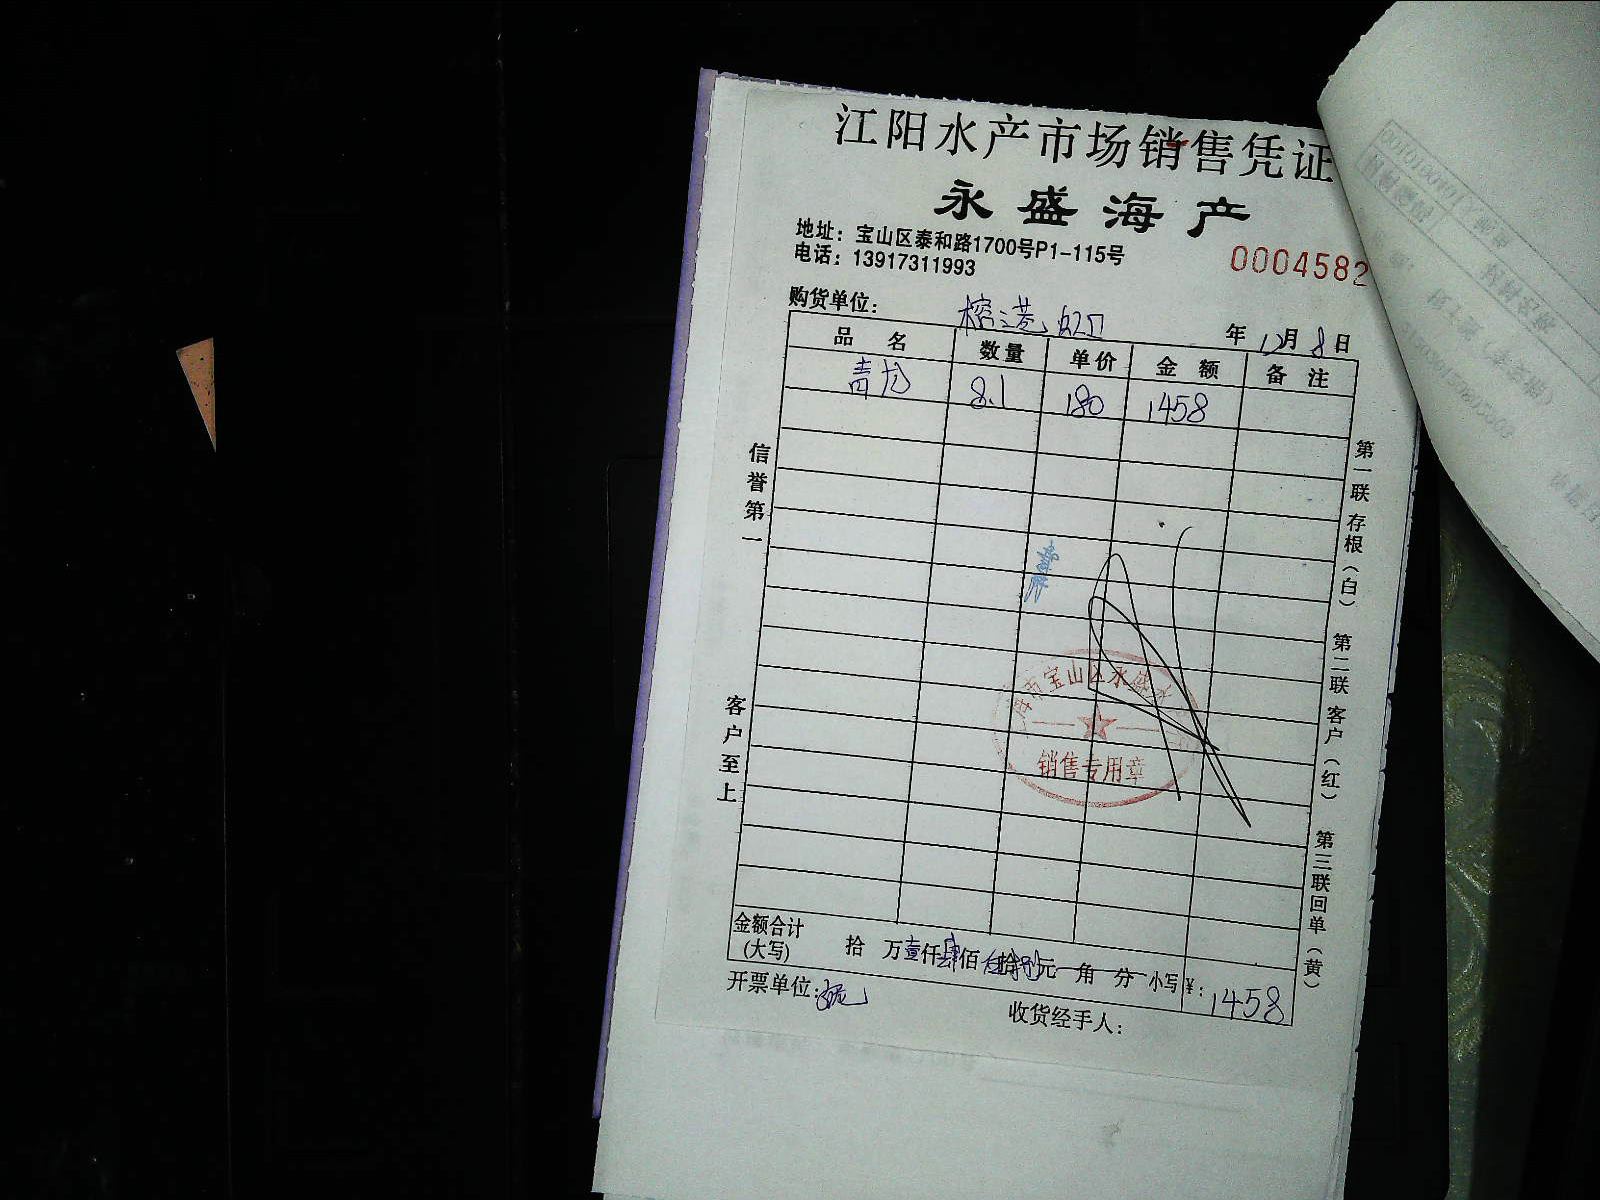 江阳水产市场销售凭证
永盛海产
地址：宝山区泰和路1700号P1-115号
电话：13917311993
0004582
购货单位：榕港
年 12月 8日
品 名 数量 单价 金 额 备 注
青龙 8.1 180 1458
信誉第一
客户至上
第一联 存根（白） 第二联 客户（红） 第三联 回单（黄）
市宝山区永盛
销售专用章
金额合计
(大写) 拾 万壹仟肆佰伍拾捌元 角 分 小写¥：1458
开票单位：
收货经手人：